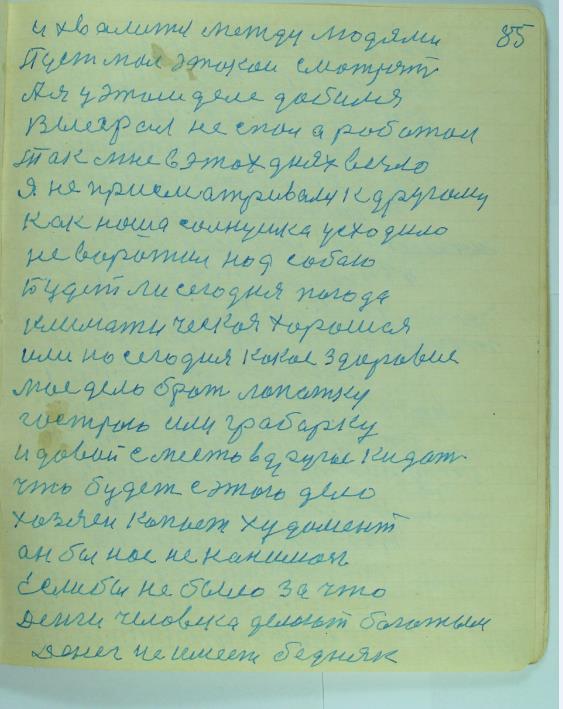 85
и хвалити между людями
Пуст молэтокои смотрят
А я у этом деле добился
Вислярал не спал а работал
так мне в этох днях везло
я не присматривался к другому
как наша солнушка усходило
не воротил над собаю
Будет ли сегодня погода
климатическоя хорошая
или на сегодня какое здоровие
мое дело брат лопатку
гострою или грабарку
и довай с месть в другое кидат
что будет с этого дело
хозяен копает худомент
он бы нас не нанимал
Если бы не было за что
Денги человека делают богатым
Денег не имеет бедняк